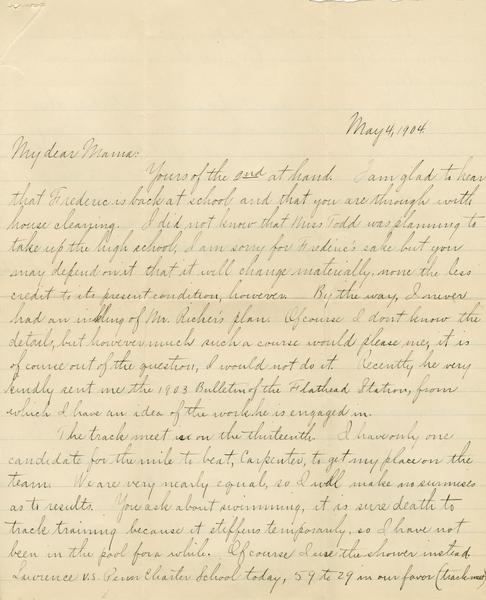 May 4, 1904.
My dear Mama:
Yours of the 2nd at hand. I am glad to hear
that Frederic is back at school and that you are through with
house cleaning. I did not know that Miss Todd was planning to
take up the high school, I am sorry for Frederic's sake but you
may depend on it that it will change materially, none the less
credit to its present condition, however. By the way, I never
had an inkling of Mr. plan. Of course I don't know the
details, but however much such a course would please me, it is
of course out of the question, I would not do it. Recently he very
kindly sent me the 1903 Bulletin of the Flathead Station, from
which I have an idea of the work he is engaged in.
The track meet is on the thirteenth. I have only one
candidate for the mile to beat, Carpenter, to get my place on the
team. We are very nearly equal, so I will make no surmises
as to results. You ask about swimming, it is sure death to
track training because it stiffens temporarily, so I have not
been in the pool for a while. Of course I use the shower instead.
Lawrence v.s. Penn Charter School today, 59 to 29 in our favor (track meet)